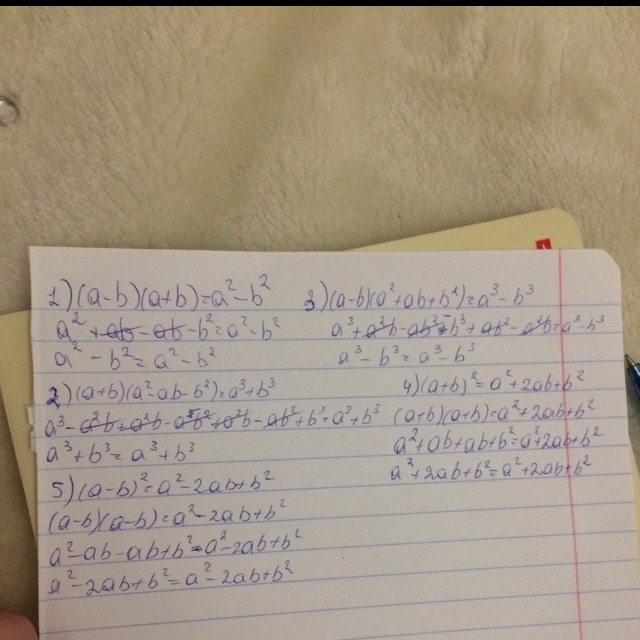 1)(a-b)(a+b)=a²-b²
a²+ab-ab-b²=a²-b²
a²-b²=a²-b²
3)(a-b)(a²+ab+b²)=a³-b³
a³+a²b-ab²-b³+ab²-a²b=a³-b³
a³-b³=a³-b³
2)(a+b)(a²-ab-b²)=a³+b³
a³+b³=a³+b³
4)(a+b)²=a²+2ab+b²
(a+b)(a+b)=a²+2ab+b²
a²+ab+ab+b²=a²+2ab+b²
a²+2ab+b²=a²+2ab+b²
5)(a-b)²=a²-2ab+b²
(a-b)(a-b)=a²-2ab+b²
a²-ab-ab+b²=a²-2ab+b²
a²-2ab+b²=a²-2ab+b²